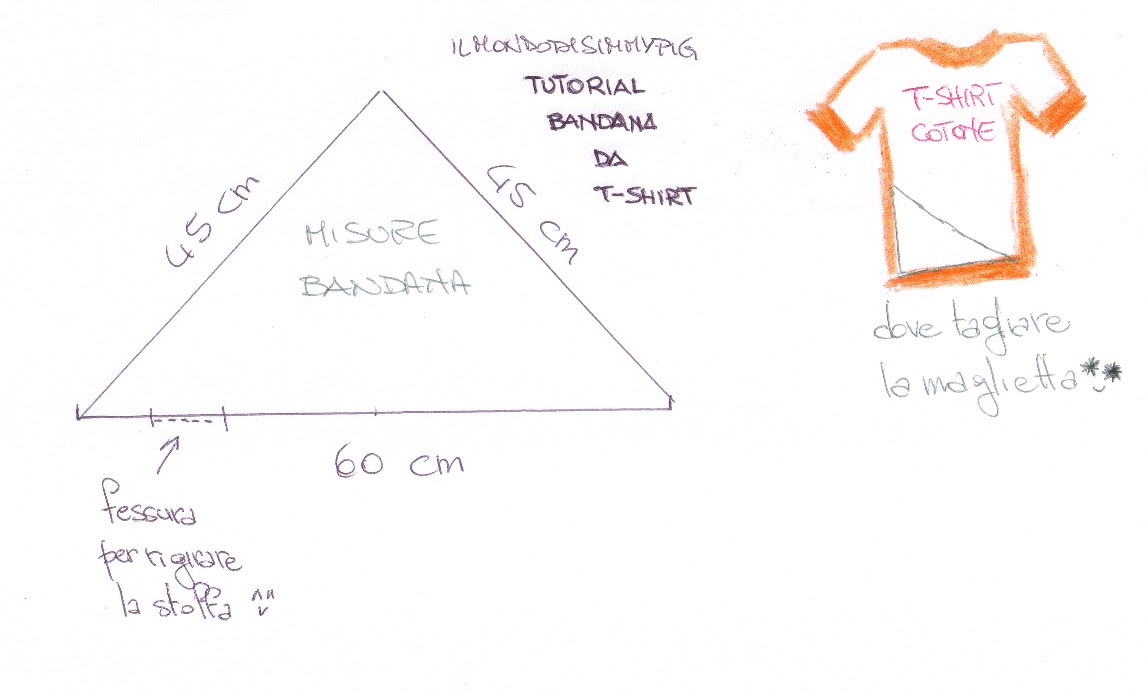 ILMONDODISIMMYPIG
TUTORIAL
BANDANA
DA
T-SHIRT
T-SHIRT
COTONE
45 cm
45 cm
MISURE
BANDANA
dove tagliare
la maglietta
60 cm
fessura
per rigirare
la stoffa